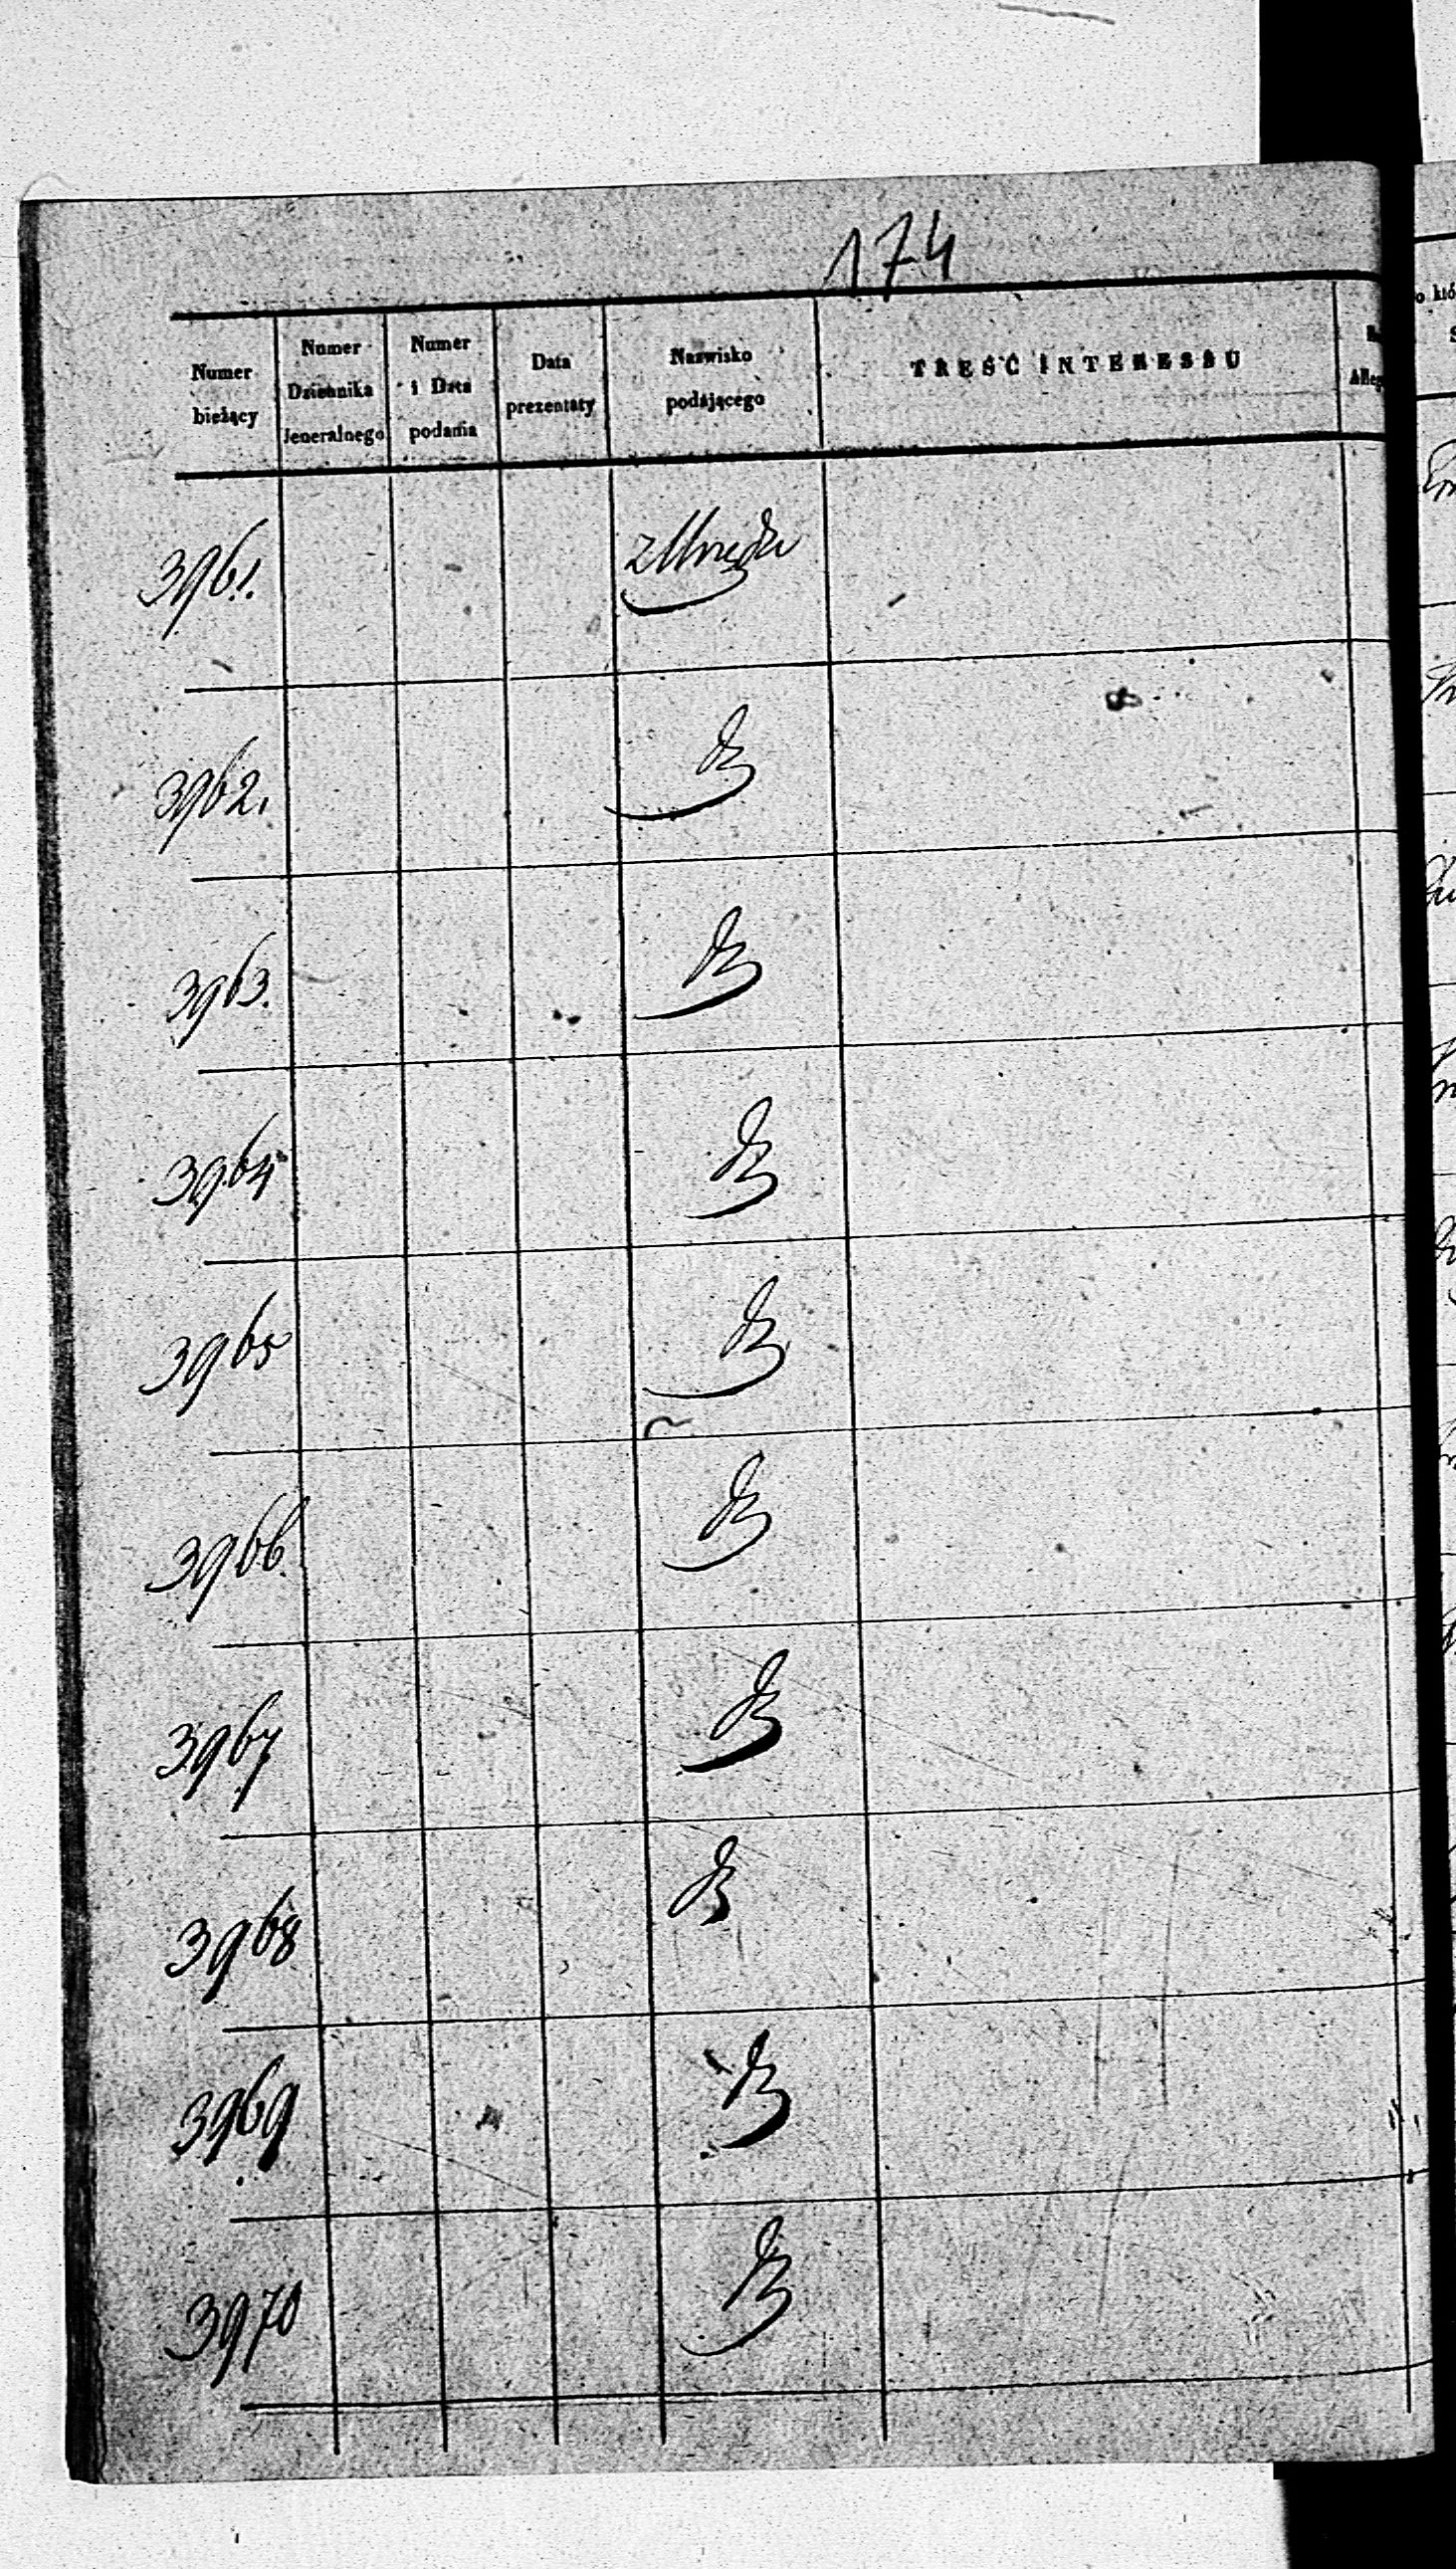 174
Numer bieżący
Numer Dziennika Jeneralnego
Numer i Data podania
Data prezentaty
Nazwisko podającego
TREŚĆ INTERESSU
3961. z Urzędu
3962. dt
3963. dt
3964 dt
3965 dt
3966. dt
3967 dt
3968 dt
3969 dt
3970 dt